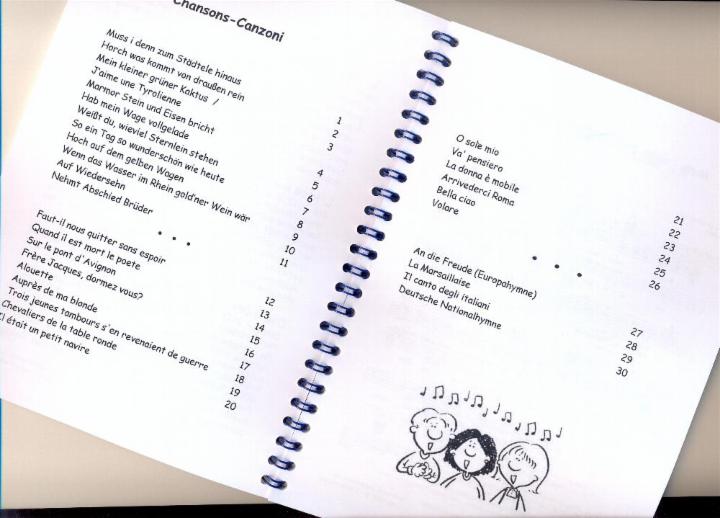 Chansons-Canzoni
Muss i denn zum Städtele hinaus 1
Horch was kommt von draußen rein 2
Mein kleiner grüner Kaktus / 3
J'aime une Tyrolienne
Marmor Stein und Eisen bricht 4
Hab mein Wage vollgelade 5
Weißt du, wieviel Sternlein stehen 6
So ein Tag so wunderschön wie heute 7
Hoch auf dem gelben Wagen 8
Wenn das Wasser im Rhein gold'ner Wein wär 9
Auf Wiedersehn 10
Nehmt Abschied Brüder 11
• • •
Faut-il nous quitter sans espoir 12
Quand il est mort le poete 13
Sur le pont d'Avignon 14
Frère Jacques, dormez vous? 15
Alouette 16
Auprès de ma blonde 17
Trois jeunes tambours s'en revenaient de guerre 18
Chevaliers de la table ronde 19
Il était un petit navire 20
O sole mio 21
Va' pensiero 22
La donna è mobile 23
Arrivederci Roma 24
Bella ciao 25
Volare 26
• • •
An die Freude (Europahymne) 27
La Marsaillaise 28
Il canto degli italiani 29
Deutsche Nationalhymne 30